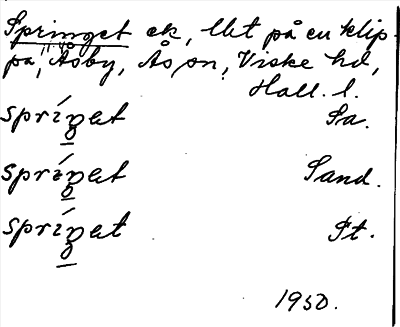 Springet ek, llt på en klip-
pa, Åsby, Ås sn, Viske hd,
Hall. l.
spríŋət Sa.
spríŋət Sand.
spríŋət St.
1950.